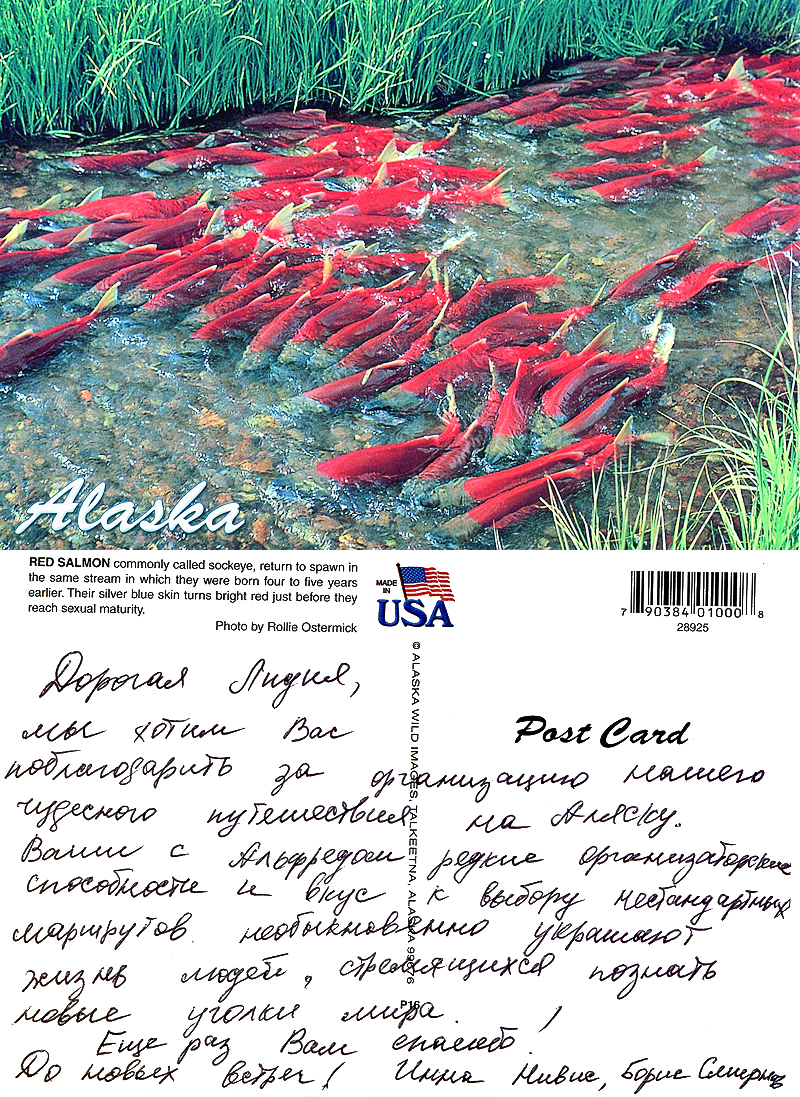 Alaska
RED SALMON commonly called sockeye, return to spawn in
the same stream in which they were born four to five years
earlier. Their silver blue skin turns bright red just before they
reach sexual maturity.
Photo by Rollie Ostermick
MADE
IN
USA
7 90384 01000 8
28925
© ALASKA WILD IMAGES, TALKEETNA, ALASKA 99676
P16
Post Card
Дорогая Лидия,
мы хотим Вас
поблагодарить за организацию нашего
чудесного путешествия на Аляску.
Ваши с Альфредом редкие организаторские
способности и вкус к выбору нестандартных
маршрутов необыкновенно украшают
жизнь людей, стремящихся познать
новые уголки мира.
Еще раз Вам спасибо!
До новых встреч! Инна Нивис, Борис Смирнов